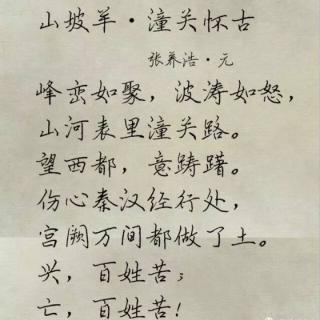 山坡羊·潼关怀古
张养浩·元
峰峦如聚，波涛如怒，
山河表里潼关路。
望西都，意踌躇。
伤心秦汉经行处，
宫阙万间都做了土。
兴，百姓苦；
亡，百姓苦！